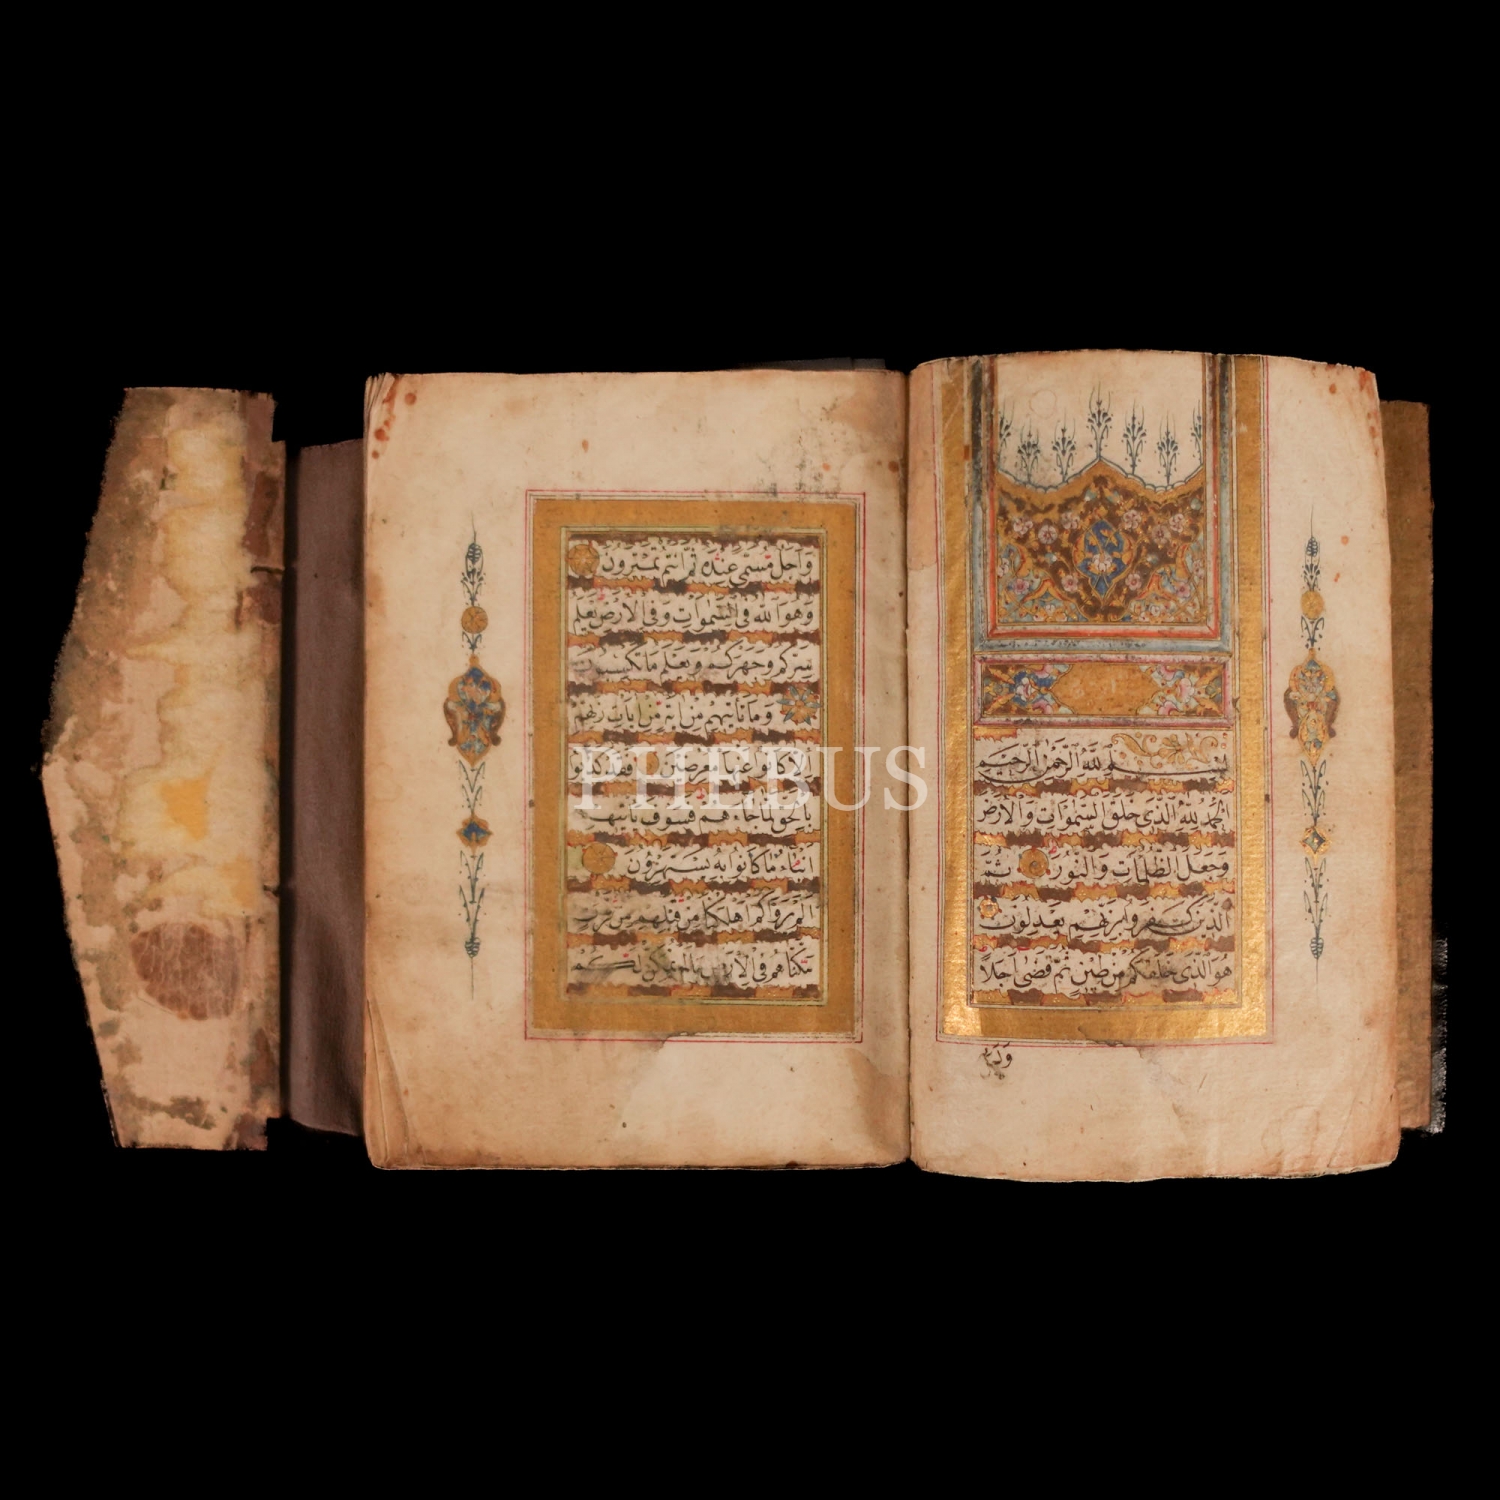 بسم الله الرحمن الرحيم
الحمد لله الذي خلق السموات والارض
وجعل الظلمات والنور ثم
الذين كفروا بربهم يعدلون
هو الذي خلقكم من طين ثم قضى اجلا
واجل مسمى عنده ثم انتم تمترون
وهو الله في السموات وفي الارض يعلم
سركم وجهركم ويعلم ما تكسبون
وما تاتيهم من اية من ايات ربهم
الا كانوا عنها معرضين فقد كذبوا
بالحق لما جاءهم فسوف ياتيهم
انباء ما كانوا به يستهزؤن
الم يروا كم اهلكنا من قبلهم من قرن
مكناهم في الارض ما لم نمكن لكم
PHEBUS